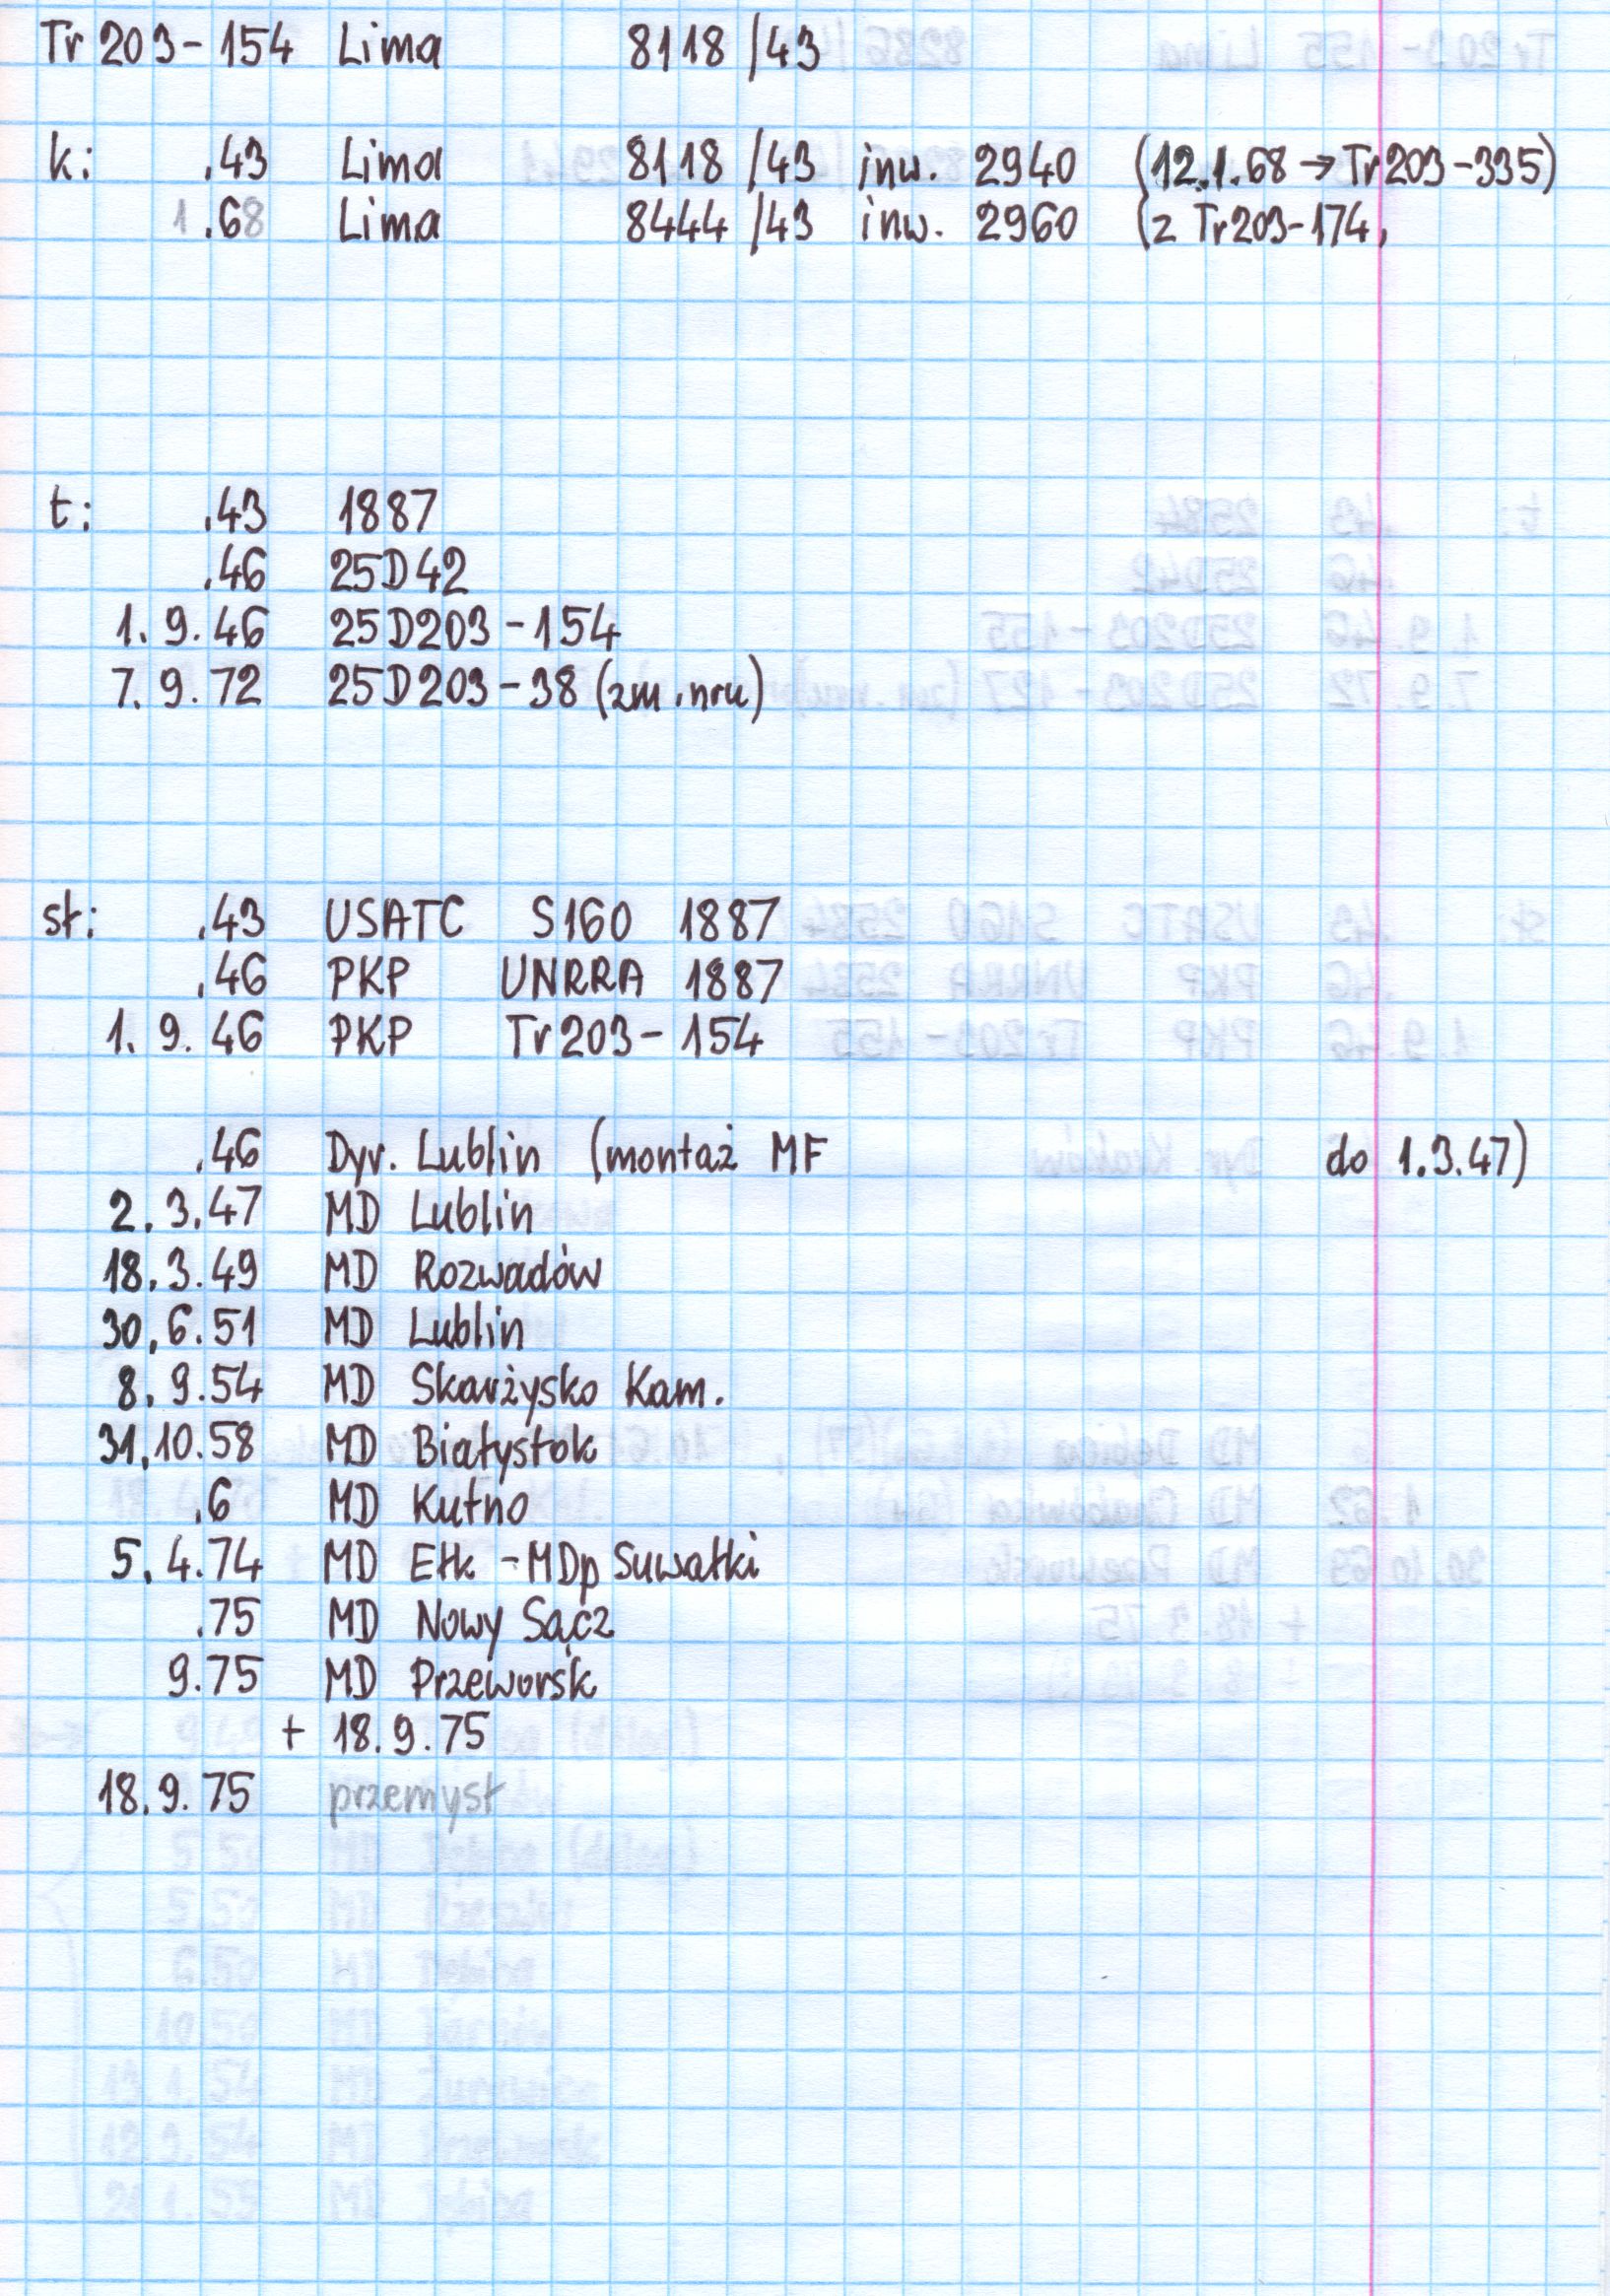 Tr 203-154 Lima 8118/43
k: .43 Lima 8118/43 inw. 2940 (12.1.68 → Tr203-335)
1.68 Lima 8444/43 inw. 2960 (z Tr203-174,
t: .43 1887
.46 25D42
1.9.46 25D203-154
7.9.72 25D203-38 (zm.nru)
sł: .43 USATC S160 1887
.46 PKP UNRRA 1887
1.9.46 PKP Tr203-154
.46 Dyr. Lublin (montaż MF do 1.3.47)
2.3.47 MD Lublin
18.3.49 MD Rozwadów
30.6.51 MD Lublin
8.9.54 MD Skarżysko Kam.
31.10.58 MD Białystok
.6 MD Kutno
5.4.74 MD Ełk - MDp Suwałki
.75 MD Nowy Sącz
9.75 MD Przeworsk
+ 18.9.75
18.9.75 przemysł